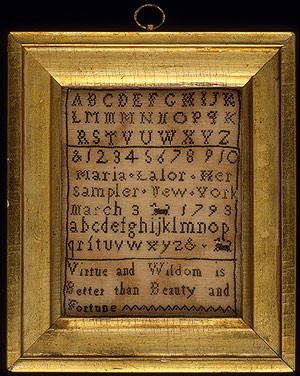 A B C D E F G H I J K
L M M N N O P Q K
R S T V U W X Y Z
& 1 2 3 4 5 6 7 8 9 10
Maria Lalor Her
sampler New York
march 3 1793
abcdefghijklmnop
qrſtuvwxyz&
Virtue and Wiſdom is
Better than Beauty and
Fortune